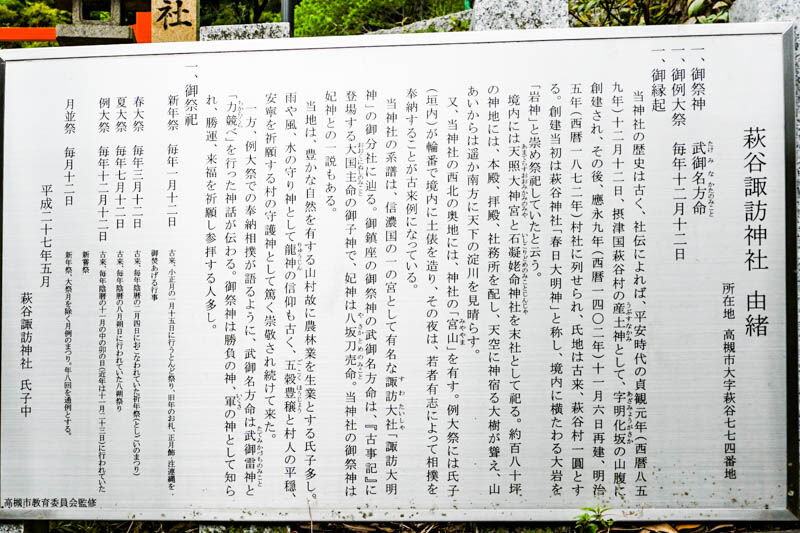 社
萩谷諏訪神社 由緒
所在地 高槻市大字萩谷七七四番地
一、御祭神 武御名方命
たけみなかたのみこと
一、御例大祭 毎年十二月十二日
一、御縁起
当神社の歴史は古く、社伝によれば、平安時代の貞観元年(西暦八五
九年)十二月十二日、摂津国萩谷村の産土神として、字明化坂の山腹に
うぶすなかみ
創建され、その後、應永九年(西暦一四〇二年)十一月六日再建、明治
五年(西暦一八七二年)村社に列せられ、氏地は古来、萩谷村一圓とす
る。創建当初は萩谷神社「春日大明神」と称し、境内に横たわる大岩を
「岩神」と崇め祭祀していたと云う。
境内には天照大神宮と石凝姥命神社を末社として祀る。約百八十坪
の神地には、本殿、拝殿、社務所を配し、天空に神宿る大樹が聳え、山
あいからは遥か南方に天下の淀川を見晴らす。
又、当神社の西北の奥地には、神社の「宮山」を有す。例大祭には氏子
みややま
(垣内)が輪番で境内に土俵を造り、その夜は、若者有志によって相撲を
奉納することが古来例になっている。
当神社の系譜は、信濃国の一の宮として有名な諏訪大社「諏訪大明
すわたいしゃ
神」の御分社に辿る。御鎮座の御祭神の武御名方命は、『古事記』に
登場する大国主命の御子神で、妃神は八坂刀売命。当神社の御祭神は
おおくにぬしのみこと
やさかとめのみこと
妃神との一説もある。
当地は、豊かな自然を有する山村故に農林業を生業とする氏子多し。
雨や風、水の守り神として龍神の信仰も古く、五穀豊穣と村人の平穏、
りゅうじん
ごこくほうじょう
安寧を祈願する村の守護神として篤く崇敬され続けて来た。
一方、例大祭での奉納相撲が語るように、武御名方命は武御雷神と
たてみかづちのみこと
「力競べ」を行った神話が伝わる。御祭神は勝負の神、軍の神として知ら
ちからくらべ
いくさ
れ、勝運、来福を祈願し参拝する人多し。
一、御祭祀
新年祭 毎年一月十二日 古来、小正月の一月十五日に行うとんど祭り、旧年のお札、正月飾、注連縄を
御祭あげる行事
春大祭 毎年三月十二日 古来、毎年陰暦の二月四日におこなわれていた祈年祭(としごいのまつり)
夏大祭 毎年七月十二日 古来、毎年陰暦の八月朔日に行われていた八朔祭り
例大祭 毎年十二月十二日 古来、毎年陰暦の十一月の中の卯の日(近年は十一月二十三日)に行われていた
新嘗祭
月並祭 毎月十二日 新年祭、大祭月を除く月例のまつり。年八回を通例とする。
平成二十七年五月
萩谷諏訪神社 氏子中
高槻市教育委員会監修